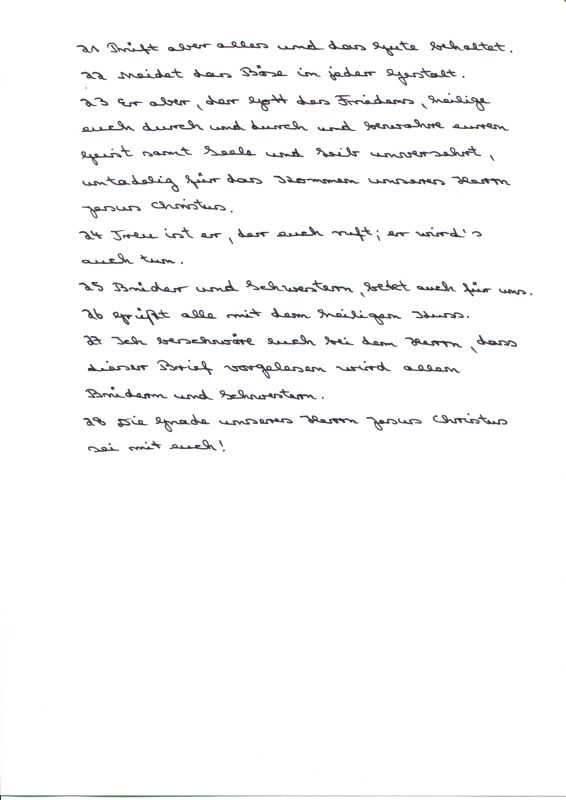 21 Prüft aber alles und das Gute behaltet.
22 Meidet das Böse in jeder Gestalt.
23 Er aber, der Gott des Friedens, heilige
euch durch und durch und bewahre euren
Geist samt Seele und Leib unversehrt,
untadelig für das Kommen unseres Herrn
Jesus Christus.
24 Treu ist er, der euch ruft; er wird's
auch tun.
25 Brüder und Schwestern, betet auch für uns.
26 Grüßt alle mit dem heiligen Kuss.
27 Ich beschwöre euch bei dem Herrn, dass
dieser Brief vorgelesen wird allen
Brüdern und Schwestern.
28 Die Gnade unseres Herrn Jesus Christus
sei mit euch!